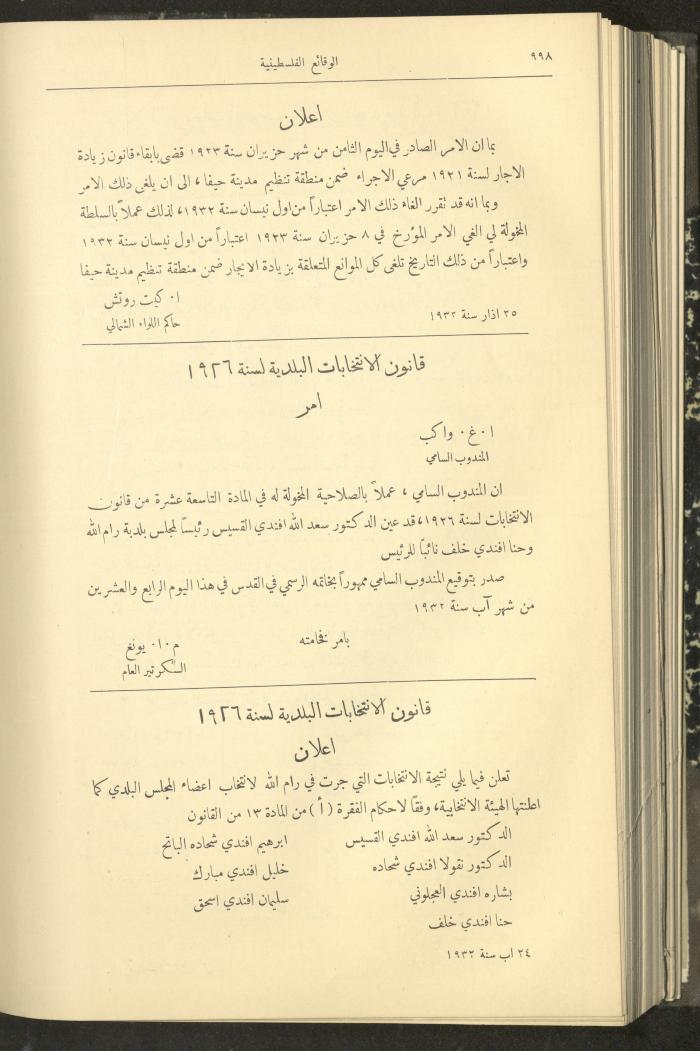 ٩٩٨
الوقائع الفلسطينية
اعلان
بما ان الامر الصادر في اليوم الثامن من شهر حزيران سنة ١٩٢٣ قضى بابقاء قانون زيادة
الاجار لسنة ١٩٢١ مرعي الاجراء ضمن منطقة تنظيم مدينة حيفا، الى ان يلغى ذلك الامر
وبما انه قد تقرر الغاء ذلك الامر اعتباراً من اول نيسان سنة ١٩٣٢، لذلك عملاً بالسلطة
المخولة لي الغي الامر المؤرخ في ٨ حزيران سنة ١٩٢٣ اعتباراً من اول نيسان سنة ١٩٣٢
واعتباراً من ذلك التاريخ تلغى كل الموانع المتعلقة بزيادة الايجار ضمن منطقة تنظيم مدينة حيفا
ا٠ كيت روتش
٢٥ اذار سنة ١٩٣٢
حاكم اللواء الشمالي
قانون الانتخابات البلدية لسنة ١٩٢٦
امر
ا٠ غ٠ واكب
المندوب السامي
ان المندوب السامي، عملاً بالصلاحية المخولة له في المادة التاسعة عشرة من قانون
الانتخابات لسنة ١٩٢٦، قد عين الدكتور سعد الله افندي القسيس رئيساً لمجلس بلدية رام الله
وحنا افندي خلف نائباً للرئيس
صدر بتوقيع المندوب السامي ممهوراً بخاتمه الرسمي في القدس في هذا اليوم الرابع والعشرين
من شهر آب سنة ١٩٣٢
بامر فخامته
م٠ ا٠ يونغ
السكرتير العام
قانون الانتخابات البلدية لسنة ١٩٢٦
اعلان
تعلن فيما يلي نتيجة الانتخابات التي جرت في رام الله لانتخاب اعضاء المجلس البلدي كما
اعلنتها الهيئة الانتخابية، وفقاً لاحكام الفقرة (أ) من المادة ١٣ من القانون
الدكتور سعد الله افندي القسيس
ابرهيم افندي شحاده الباتح
الدكتور نقولا افندي شحاده
خليل افندي مبارك
بشاره افندي العجلوني
سليمان افندي اسحق
حنا افندي خلف
٢٤ اب سنة ١٩٣٢